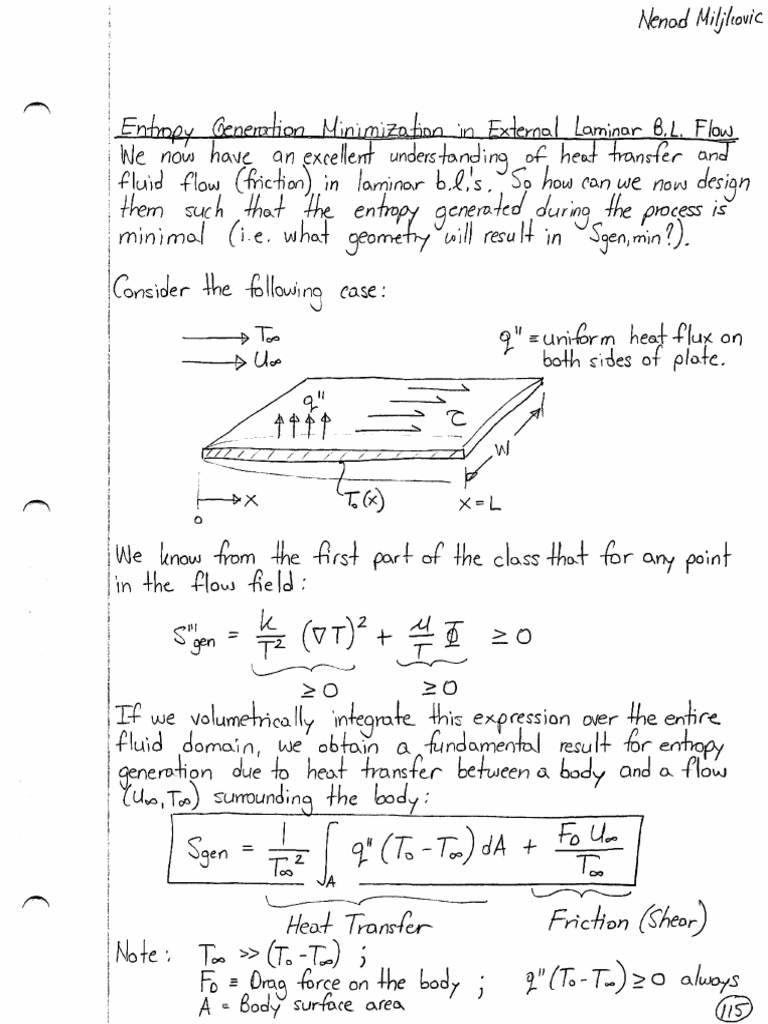 Nenad Miljkovic
Entropy Generation Minimization in External Laminar B.L. Flow
We now have an excellent understanding of heat transfer and
fluid flow (friction) in laminar b.l.'s. So how can we now design
them such that the entropy generated during the process is
minimal (i.e. what geometry will result in Sgen,min?).
Consider the following case:
T∞
U∞
q" ≡ uniform heat flux on
both sides of plate.
q"
τ
W
T₀(x)
x
0
x = L
We know from the first part of the class that for any point
in the flow field:
S'''gen = k/T² (∇T)² + μ/T Φ ≥ 0
≥ 0 ≥ 0
If we volumetrically integrate this expression over the entire
fluid domain, we obtain a fundamental result for entropy
generation due to heat transfer between a body and a flow
(U∞, T∞) surrounding the body:
Sgen = 1/T∞² ∫_A q" (T₀ - T∞) dA + F_D U∞/T∞
Heat Transfer Friction (Shear)
Note: T∞ >> (T₀ - T∞) ;
F_D ≡ Drag force on the body ; q"(T₀ - T∞) ≥ 0 always
A = Body surface area
115